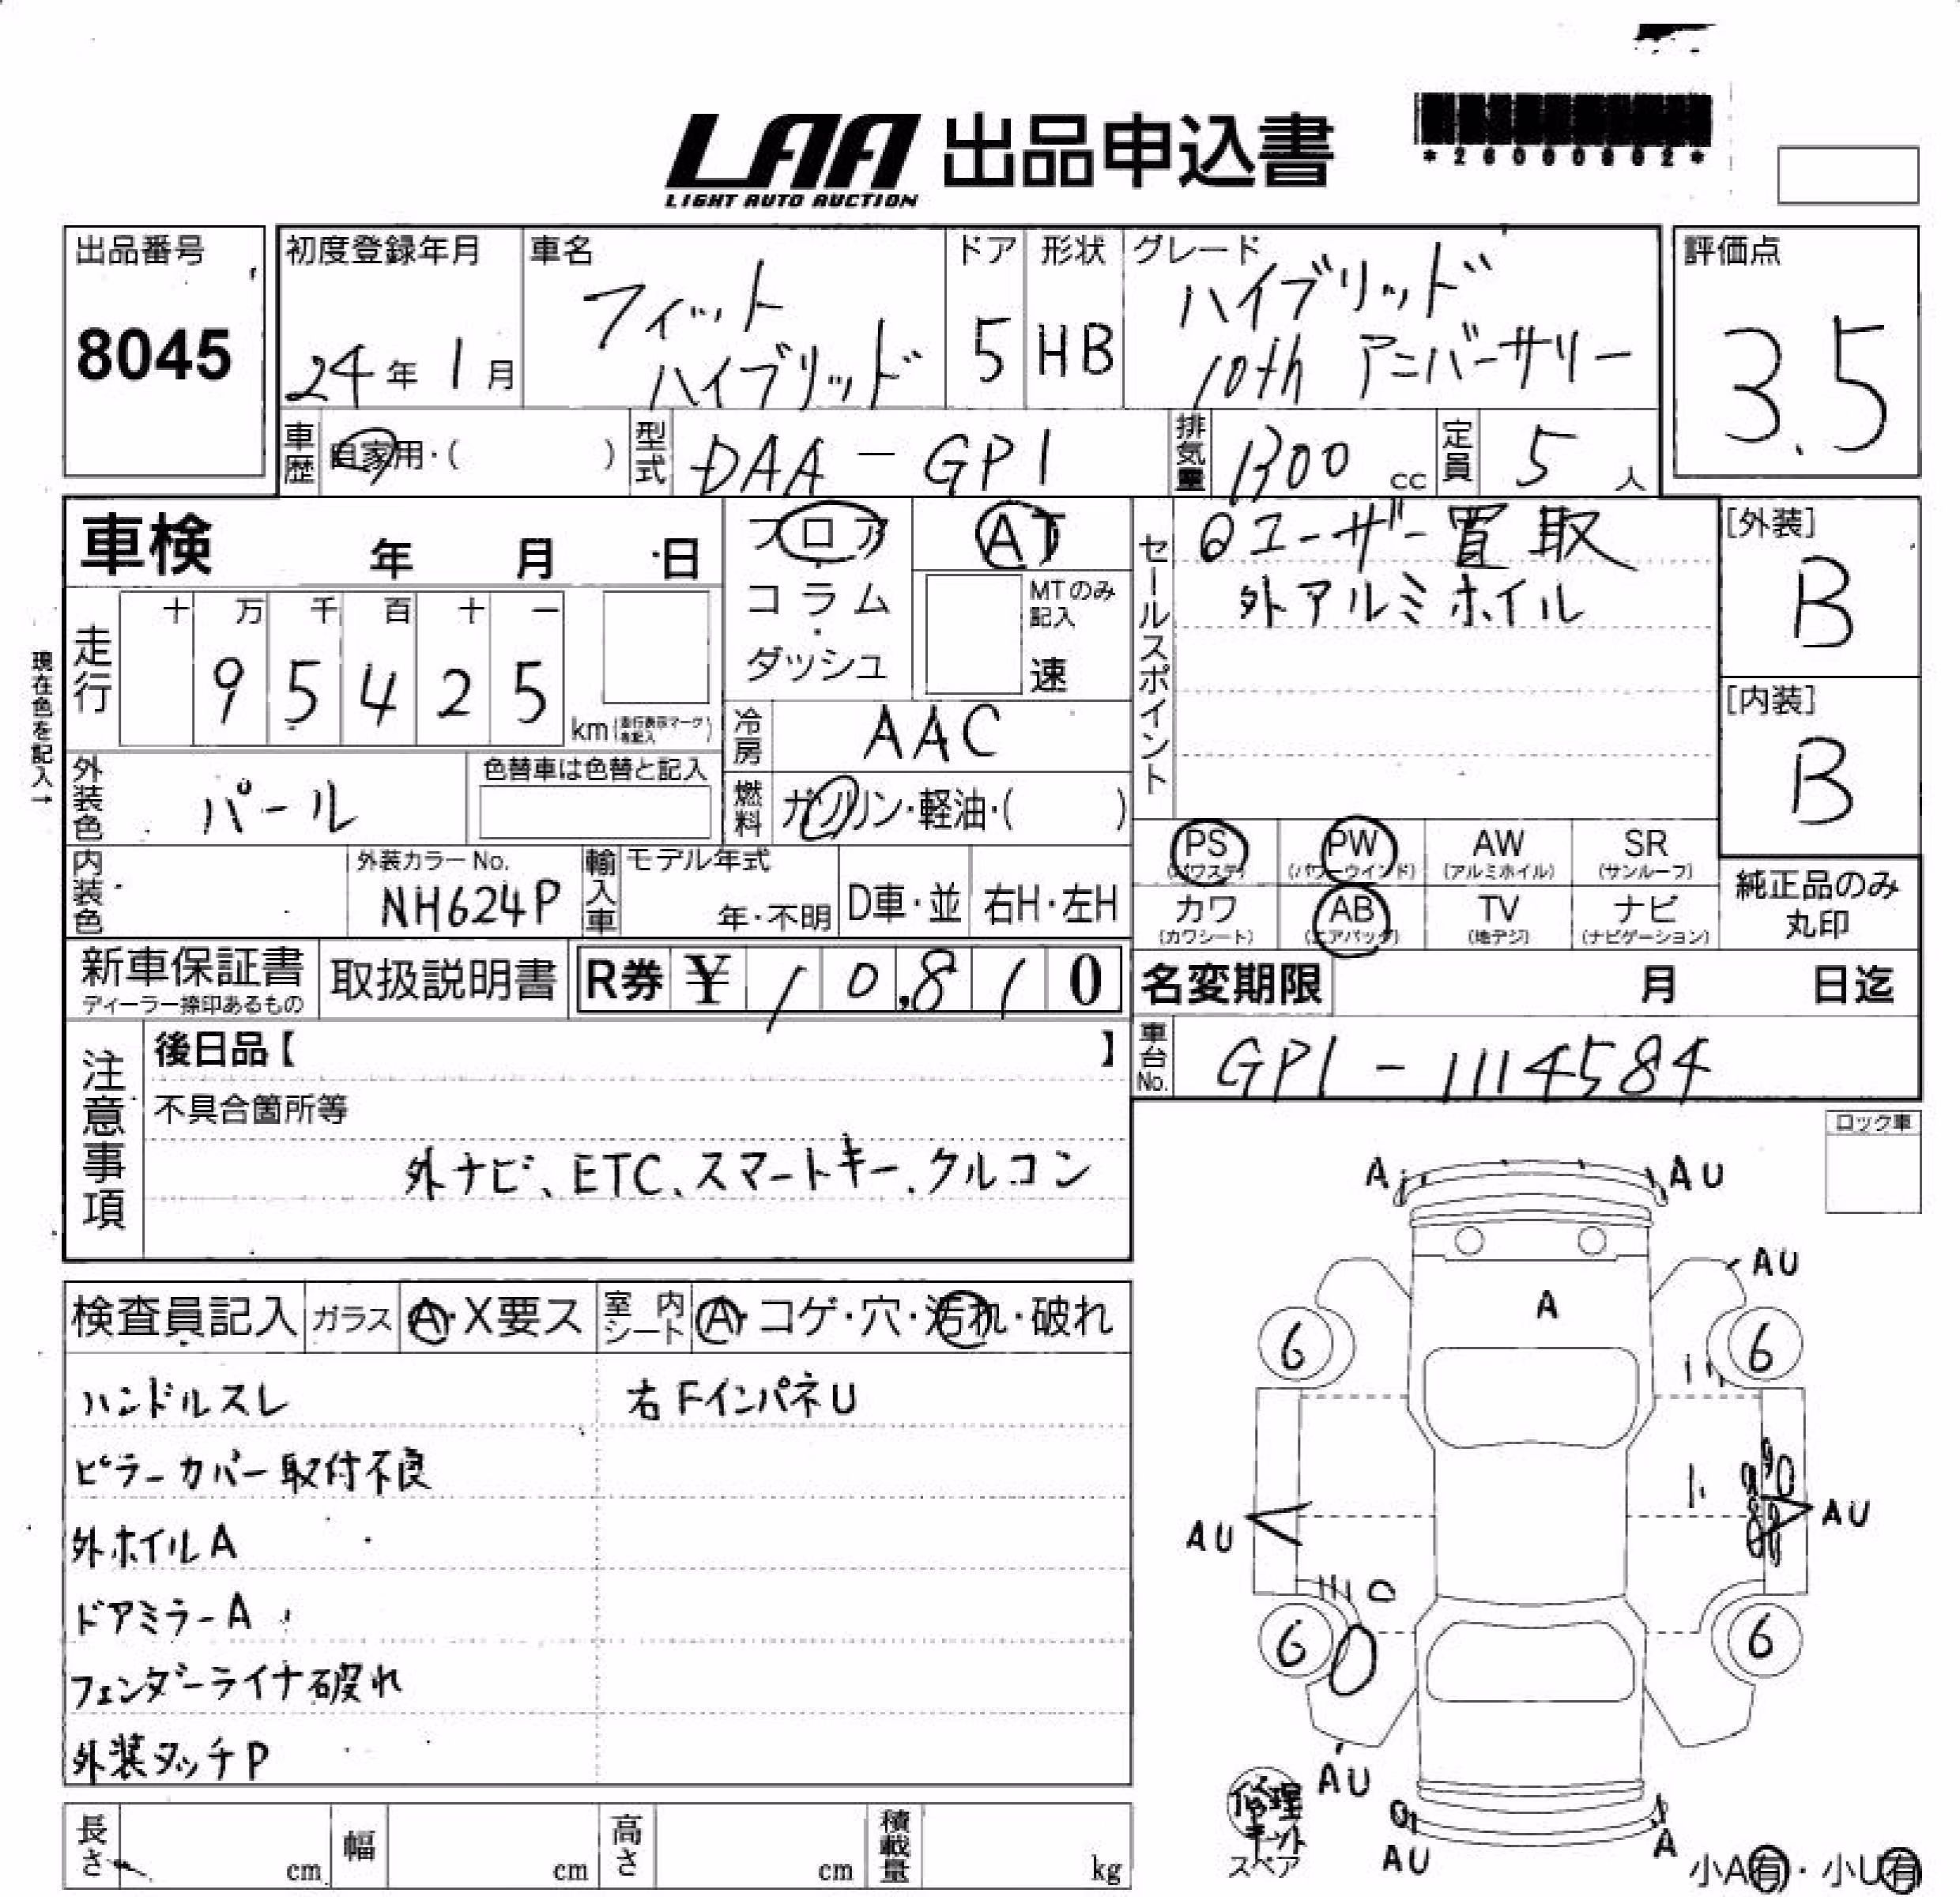 LAA 出品申込書
LIGHT AUTO AUCTION
出品番号
8045
初度登録年月
24年1月
車名
フィット
ハイブリッド
ドア
5
形状
HB
グレード
ハイブリッド
10th アニバーサリー
評価点
3.5
車歴
自家用・( )
型式
DAA-GP1
排気量
1300 cc
定員
5 人
車検 年 月 日
フロア
コラム
・
ダッシュ
AT
MTのみ
記入
速
セールスポイント
ユーザー買取
外アルミホイル
[外装]
B
[内装]
B
現在色を記入→
走行
十 万 千 百 十 一
9 5 4 2 5
km
冷房
AAC
外装色
パール
色替車は色替と記入
燃料
ガソリン・軽油・( )
PS
(パワステ)
PW
(パワーウインド)
AW
(アルミホイル)
SR
(サンルーフ)
カワ
(カワシート)
AB
(エアバッグ)
TV
(地デジ)
ナビ
(ナビゲーション)
純正品のみ
丸印
内装色
外装カラーNo.
NH624P
輸入車
モデル年式
年・不明
D車・並
右H・左H
新車保証書
ディーラー捺印あるもの
取扱説明書
R券 ¥ 10,810
名変期限 月 日迄
車台No.
GP1-1114584
注意事項
後日品【 】
不具合箇所等
外ナビ、ETC、スマートキー、クルコン
ロック車
検査員記入
ガラス
A・X要ス
室内
シート
A・コゲ・穴・汚れ・破れ
ハンドルスレ
右FインパネU
ピラーカバー取付不良
外ホイルA
ドアミラーA
フェンダーライナ破れ
外装タッチP
A
AU
AU
A
6
6
AU
AU
6
6
AU
修理
キット
スペア
AU
A
小A有・小U有
長さ cm
幅 cm
高さ cm
積載量 kg